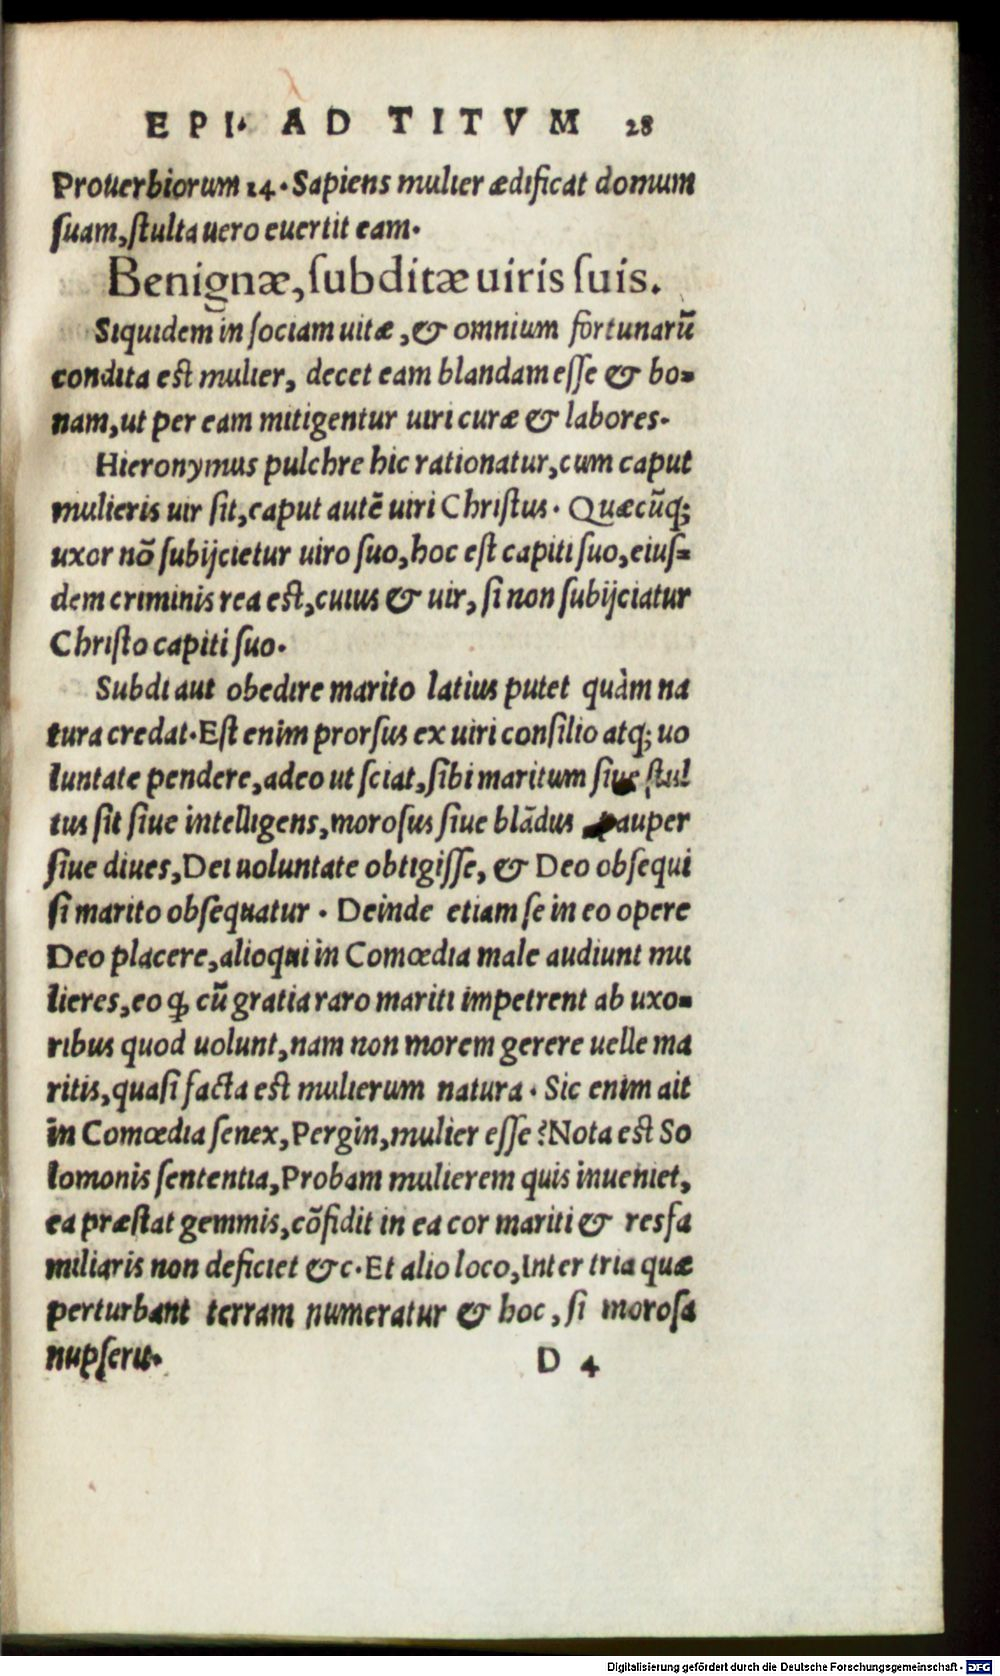 EPI. AD TITVM 28
Prouerbiorum 14. Sapiens mulier ædificat domum
ſuam, ſtulta uero euertit eam.
Benignæ, ſubditæ uiris ſuis.
Siquidem in ſociam uitæ, & omnium fortunarū
condita eſt mulier, decet eam blandam eſſe & bo-
nam, ut per eam mitigentur uiri curæ & labores.
Hieronymus pulchre hic rationatur, cum caput
mulieris uir ſit, caput autē uiri Chriſtus. Quæcūq;
uxor nō ſubijcietur uiro ſuo, hoc eſt capiti ſuo, eiuſ-
dem criminis rea eſt, cuius & uir, ſi non ſubijciatur
Chriſto capiti ſuo.
Subdi aut obedire marito latius putet quàm na
tura credat. Eſt enim prorſus ex uiri conſilio atq; uo
luntate pendere, adeo ut ſciat, ſibi maritum ſiue ſtul
tus ſit ſiue intelligens, moroſus ſiue blādus pauper
ſiue diues, Dei uoluntate obtigiſſe, & Deo obſequi
ſi marito obſequatur. Deinde etiam ſe in eo opere
Deo placere, alioqui in Comœdia male audiunt mu
lieres, eo ꝙ cū gratia raro mariti impetrent ab uxo-
ribus quod uolunt, nam non morem gerere uelle ma
ritis, quaſi facta eſt mulierum natura. Sic enim ait
in Comœdia ſenex, Pergin, mulier eſſe? Nota eſt So
lomonis ſententia, Probam mulierem quis inueniet,
ea præſtat gemmis, cōfidit in ea cor mariti & res fa
miliaris non deficiet &c. Et alio loco, Inter tria quæ
perturbant terram numeratur & hoc, ſi moroſa
nupſerit. D 4
Digitalisierung gefördert durch die Deutsche Forschungsgemeinschaft - DFG